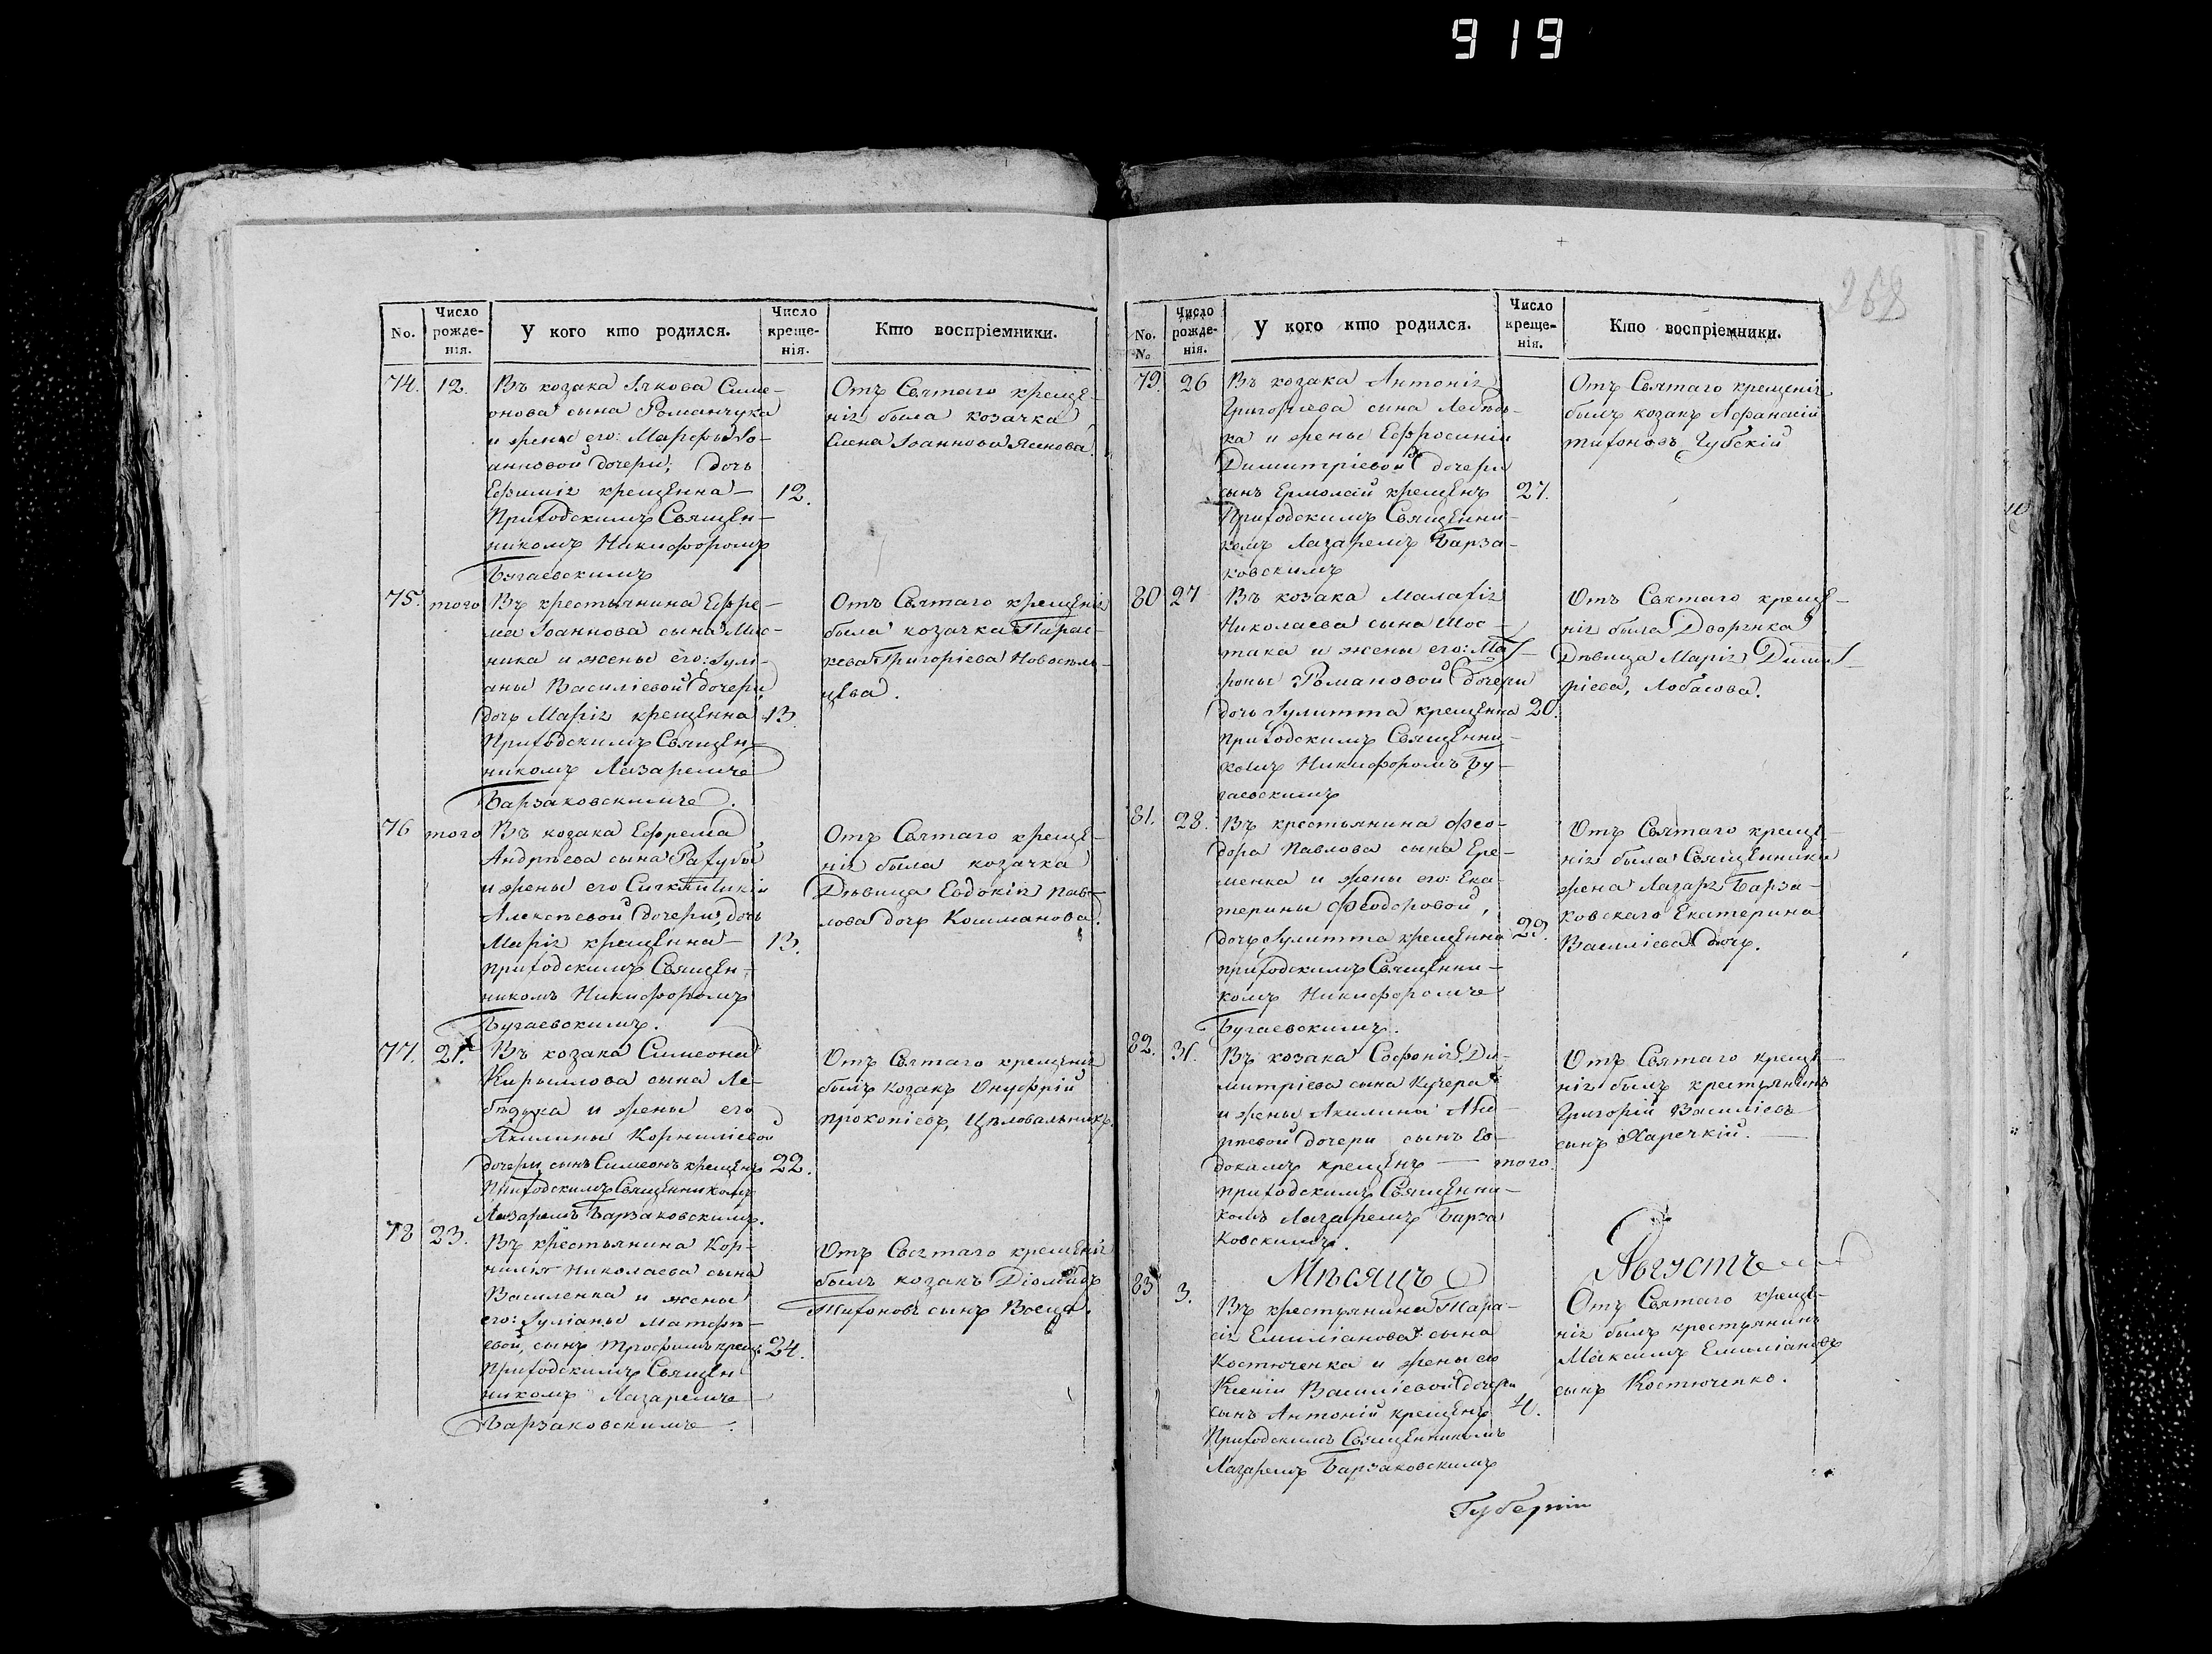 919
268
No.
Число рожде-нія.
У кого кто родился.
Число креще-нія.
Кто воспріемники.
74. 12. Въ козака Іякова Симе-
онова сына Романчука
и жены его: Марѳы Іо-
анновой дочери, дочь
Ефимія крещенна 12.
Приходскимъ Священ-
никомъ Никифоромъ
Бугаевскимъ
Отъ Святаго креще-
нія была козачка
Елена Іоаннова Яснова.
75. того Въ крестьянина Ефре-
ма Іоаннова сына
ника и жены его: Іулі-
аны Василіевой дочери
дочь Марія крещенна 13.
Приходскимъ Священ-
никомъ Лазаремъ
Барзаковскимъ.
Отъ Святаго крещенія
была козачка Парас-
кева Григоріева Новосель-
цева.
76 того Въ козака Ефрема
Андрѣева сына
и жены его Синклитикіи
Алексѣевой дочери, дочь
Марія крещенна 13.
приходскимъ Священ-
никомъ Никифоромъ
Бугаевскимъ.
Отъ Святаго креще-
нія была козачка
Дѣвица Евдокія Пав-
лова дочь Кошманова.
77. 21. Въ козака Симеона
Кирыллова сына Ле-
бѣдька и жены его
Акилины Корниліевой
дочери сынъ Симеонъ крещенъ 22.
Приходскимъ Священникомъ
Лазаремъ Барзаковскимъ.
Отъ Святаго крещенія
былъ козакъ Онуфрій
Прокопіевъ, Цѣловальникъ.
78 23. Въ крестьянина Кор-
нилія Николаева сына
Василенка и жены
его: Іуліаны Матѳѣ-
евой, сынъ Трофимъ крещ: 24.
Приходскимъ Священ
никомъ Лазаремъ
Барзаковскимъ.
Отъ Святаго крещенія
былъ козакъ Діомидъ
Тихоновъ сынъ
No. No
Число рожде-нія.
У кого кто родился.
Число креще-нія.
Кто воспріемники.
79. 26 Въ козака Антонія
Григоріева сына Лебѣдь-
ка и жены Ефросиніи
Димитріевой дочери
сынъ Ермолай крещенъ 27.
Приходскимъ Священни-
комъ Лазаремъ Барза-
ковскимъ
Отъ Святаго крещенія
былъ козакъ Афанасій
Тихоновъ Губскій
80 27 Въ козака Малахія
Николаева сына Шос-
така и жены его: Мат-
роны Романовой дочери
дочь Іулитта крещенна 28.
приходскимъ Священни-
комъ Никифоромъ Бу-
гаевскимъ
Отъ Святаго креще-
нія была Дворянка
Дѣвица Марія Димит-
ріева, Лобасова.
81. 28. Въ крестьянина Ѳео-
дора Павлова сына Ере-
менка и жены его: Ека-
терины Ѳеодоровой,
дочь Іулитта крещенна 29.
приходскимъ Священни-
комъ Никифоромъ
Бугаевскимъ.
Отъ Святаго креще-
нія была Священника
жена Лазаря Барза-
ковскаго Екатерина
Василіева дочь.
82. 31. Въ козака Софонія Ди-
митріева сына Кучера
и жены Акилины Анд-
рѣевой дочери сынъ Ев-
докимъ крещенъ — того.
приходскимъ Священни-
комъ Лазаремъ Барза
ковскимъ.
Отъ Святаго креще-
нія былъ крестьянинъ
Григорій Василіевъ
сынъ Харечкій.
Мѣсяцъ Августъ
83 3. Въ крестьянина Тара-
сія Емиліанова сына
Костюченка и жены его
Ксеніи Василіевой дочери
сынъ Антоній крещенъ 4.
Приходскимъ Священникомъ
Лазаремъ Барзаковскимъ
Отъ Святаго креще-
нія былъ крестьянинъ
Максимъ Емиліановъ
сынъ Костюченко.
Губерніи